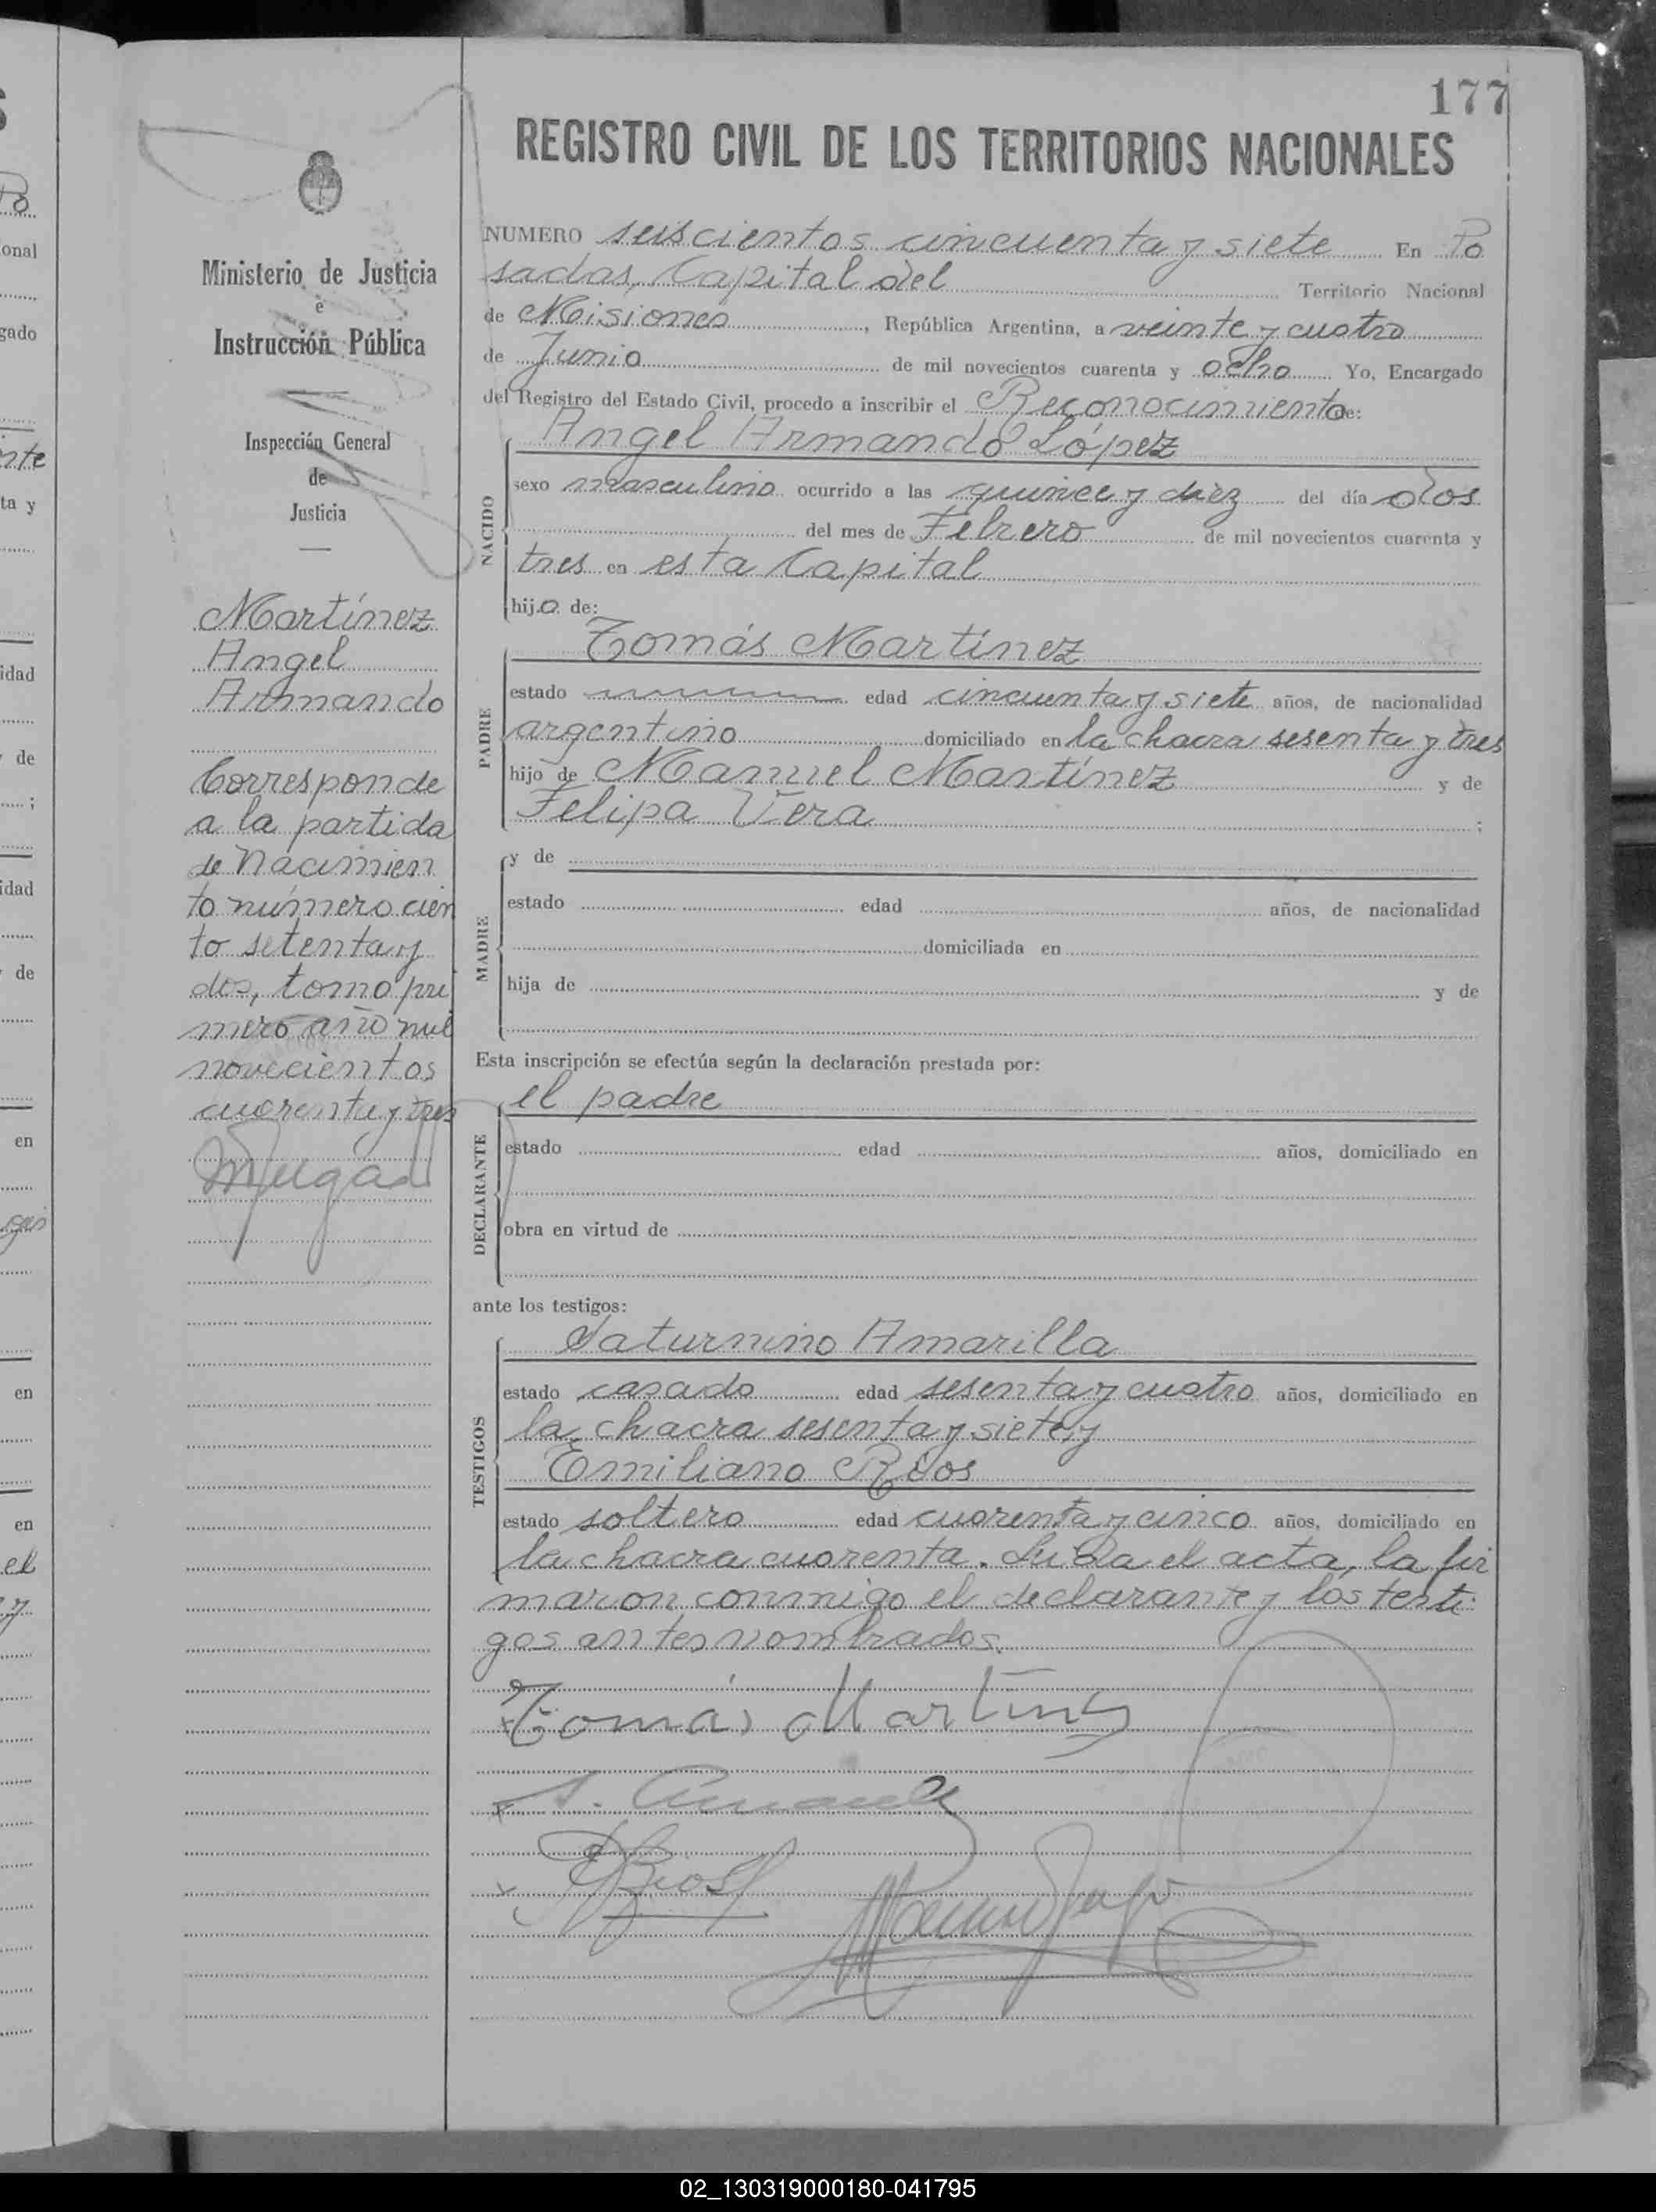 177
REGISTRO CIVIL DE LOS TERRITORIOS NACIONALES
Ministerio de Justicia
é
Instrucción Pública
Inspección General
de
Justicia
Martínez
Angel
Armando
Corresponde
a la partida
de Nacimien
to número cien
to setenta y
dos, tomo pri
mero año mil
novecientos
cuarenta y tres
NUMERO seiscientos cincuenta y siete En Po
sadas, Capital del Territorio Nacional
de Misiones, República Argentina, a veinte y cuatro
de Junio de mil novecientos cuarenta y ocho Yo, Encargado
del Registro del Estado Civil, procedo a inscribir el Reconocimiento de:
NACIDO
Angel Armando López
sexo masculino ocurrido a las quince y diez del día dos
del mes de Febrero de mil novecientos cuarenta y
tres en esta Capital
hijo de:
PADRE
Tomás Martínez
estado edad cincuenta y siete años, de nacionalidad
argentino domiciliado en la chacra sesenta y tres
hijo de Manuel Martínez y de
Felipa Vera ;
MADRE
y de
estado edad años, de nacionalidad
domiciliada en
hija de y de
Esta inscripción se efectúa según la declaración prestada por:
DECLARANTE
el padre
estado edad años, domiciliado en
obra en virtud de
ante los testigos:
TESTIGOS
Saturnino Amarilla
estado casado edad sesenta y cuatro años, domiciliado en
la chacra sesenta y siete, y
Emiliano Ríos
estado soltero edad cuarenta y cinco años, domiciliado en
la chacra cuarenta. Leída el acta, la fir
maron conmigo el declarante y los testi
gos antes nombrados.
Tomás Martínez
02_130319000180-041795